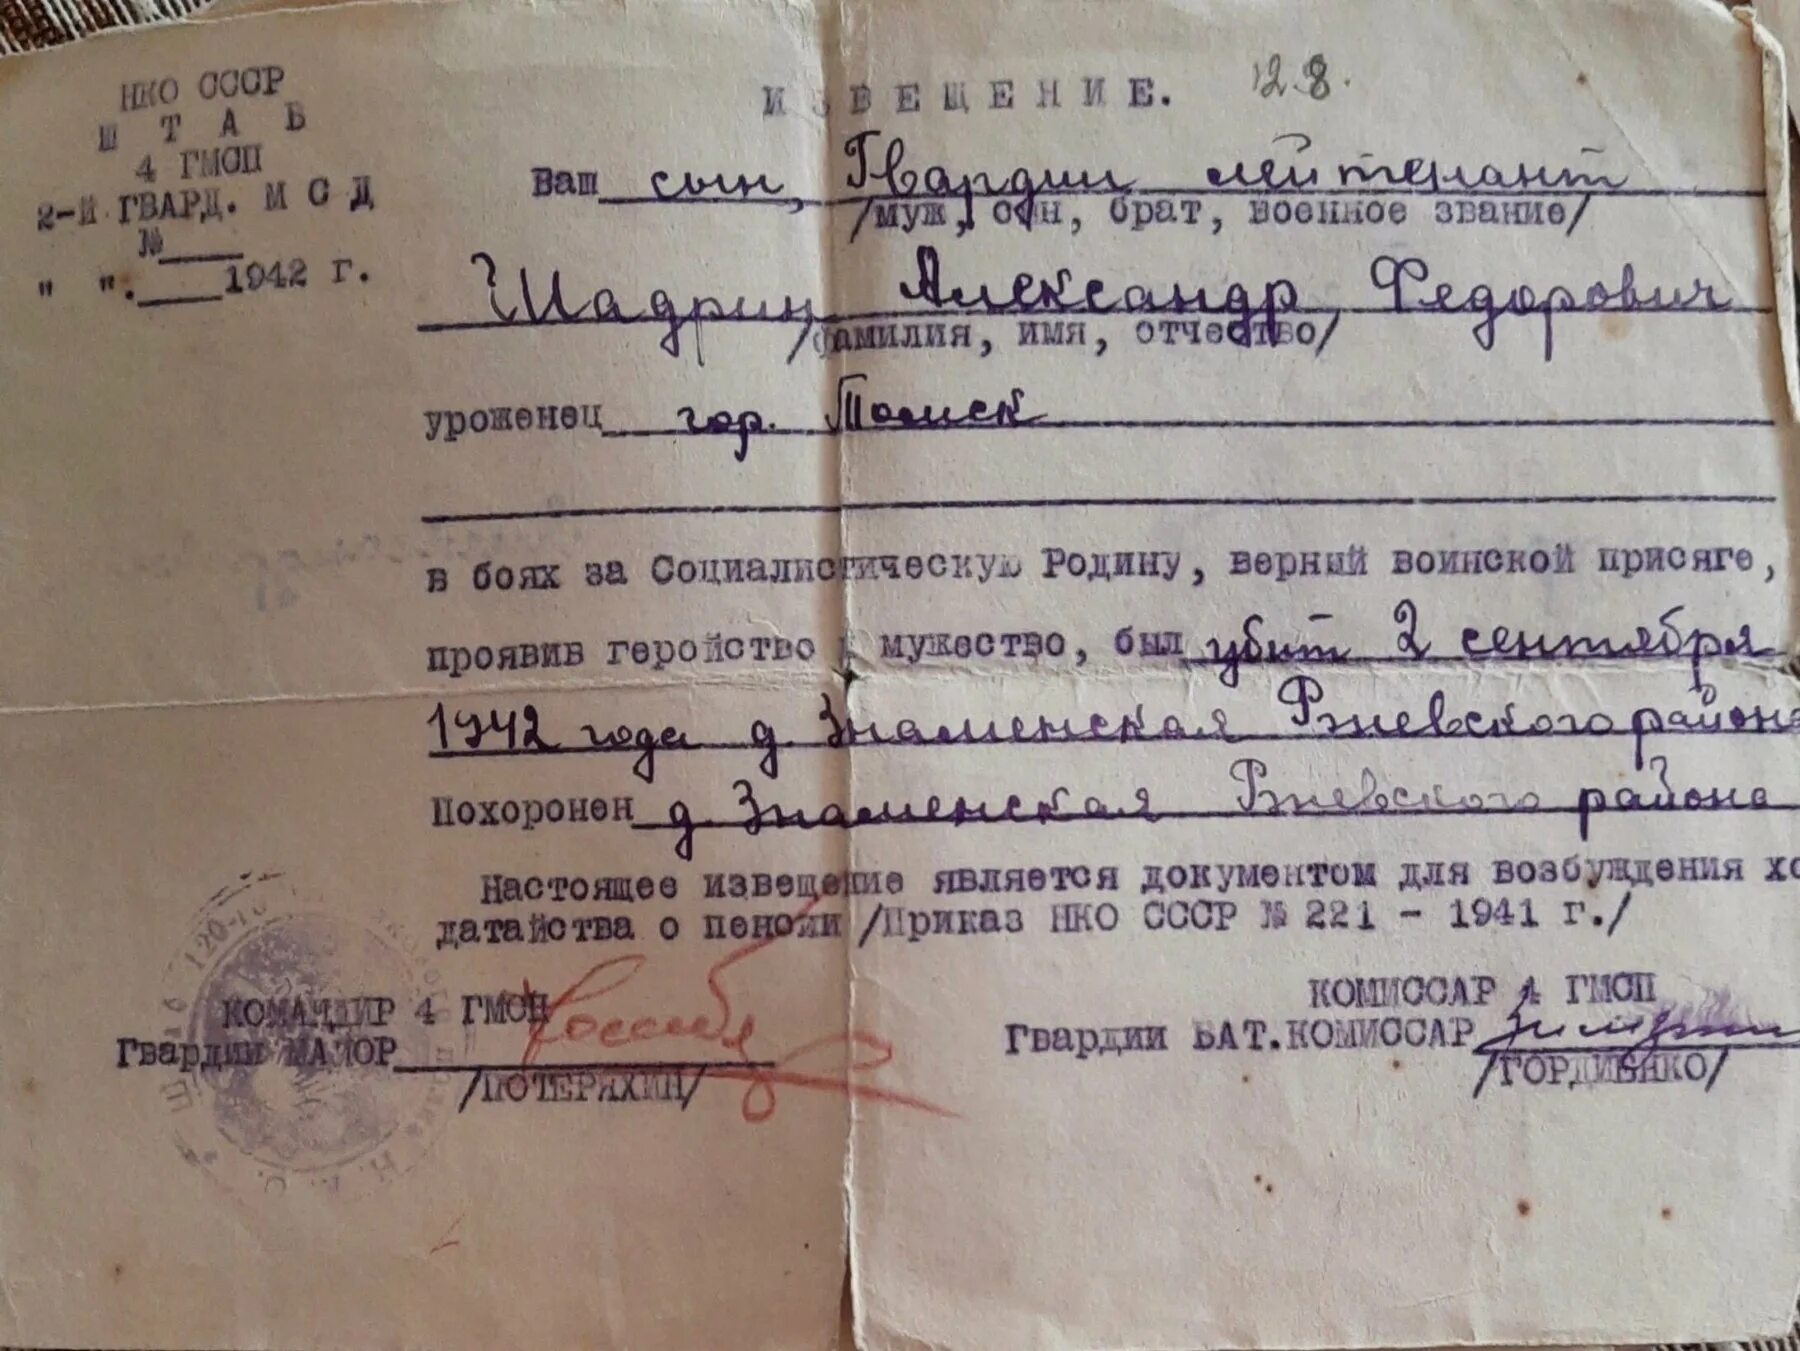 НКО СССР
Ш Т А Б
4 ГМСП
2-Й ГВАРД. М С Д
№____
" ".____1942 г.
ИЗВЕЩЕНИЕ. 128.
Ваш сын, Гвардии лейтенант
/муж, сын, брат, военное звание/
Шадрин Александр Федорович
/фамилия, имя, отчество/
уроженец гор. Томск
в боях за Социалистическую Родину, верный воинской присяге,
проявив геройство и мужество, был убит 2 сентября
1942 года д. Знаменская Ржевского района
Похоронен д. Знаменская Ржевского района
Настоящее извещение является документом для возбуждения хо
датайства о пенсии /Приказ НКО СССР № 221 - 1941 г./
КОМАНДИР 4 ГМСП
Гвардии МАЙОР
/ПОТЕРЯХИН/
КОМИССАР 4 ГМСП
Гвардии БАТ.КОМИССАР
/ГОРДИЕНКО/